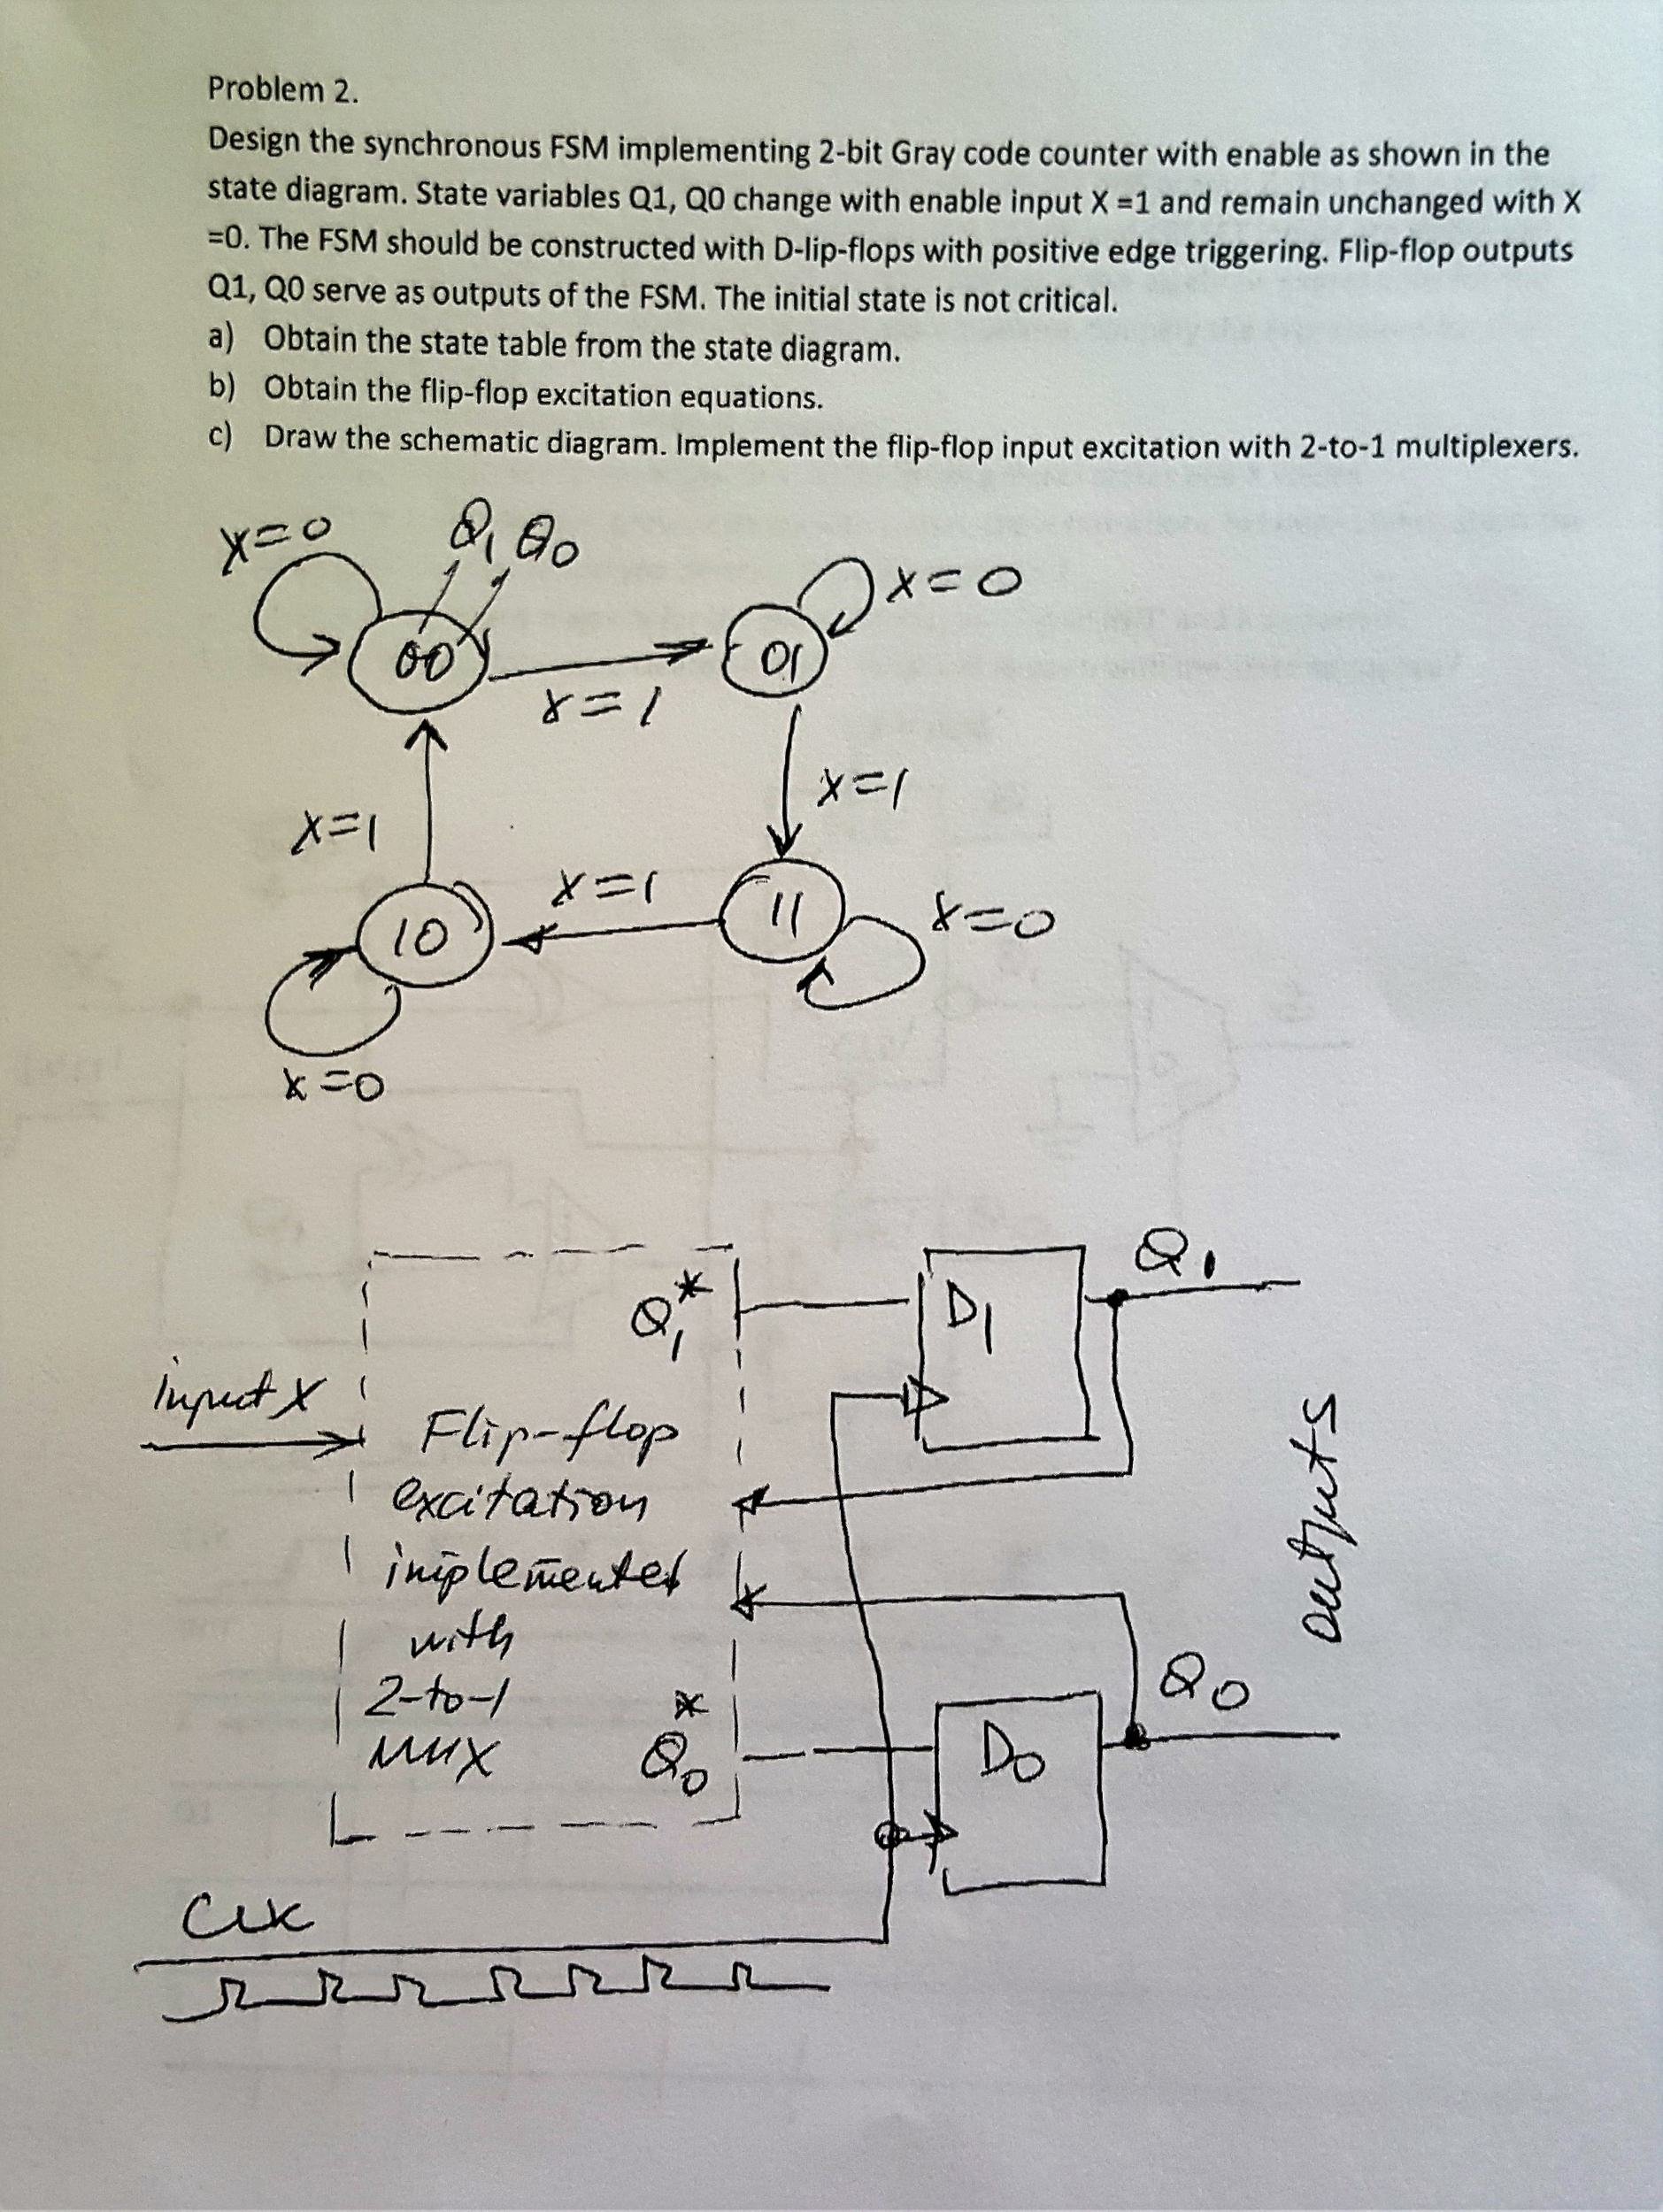 Problem 2.
Design the synchronous FSM implementing 2-bit Gray code counter with enable as shown in the
state diagram. State variables Q1, Q0 change with enable input X =1 and remain unchanged with X
=0. The FSM should be constructed with D-lip-flops with positive edge triggering. Flip-flop outputs
Q1, Q0 serve as outputs of the FSM. The initial state is not critical.
a) Obtain the state table from the state diagram.
b) Obtain the flip-flop excitation equations.
c) Draw the schematic diagram. Implement the flip-flop input excitation with 2-to-1 multiplexers.
X=0
Q1 Q0
X=0
00
01
X=1
X=1
X=1
X=1
10
11
X=0
X=0
Q1
Q1*
D1
input X
Flip-flop
excitation
implemented
with
2-to-1
MUX
outputs
Q0
Q0*
D0
CLK